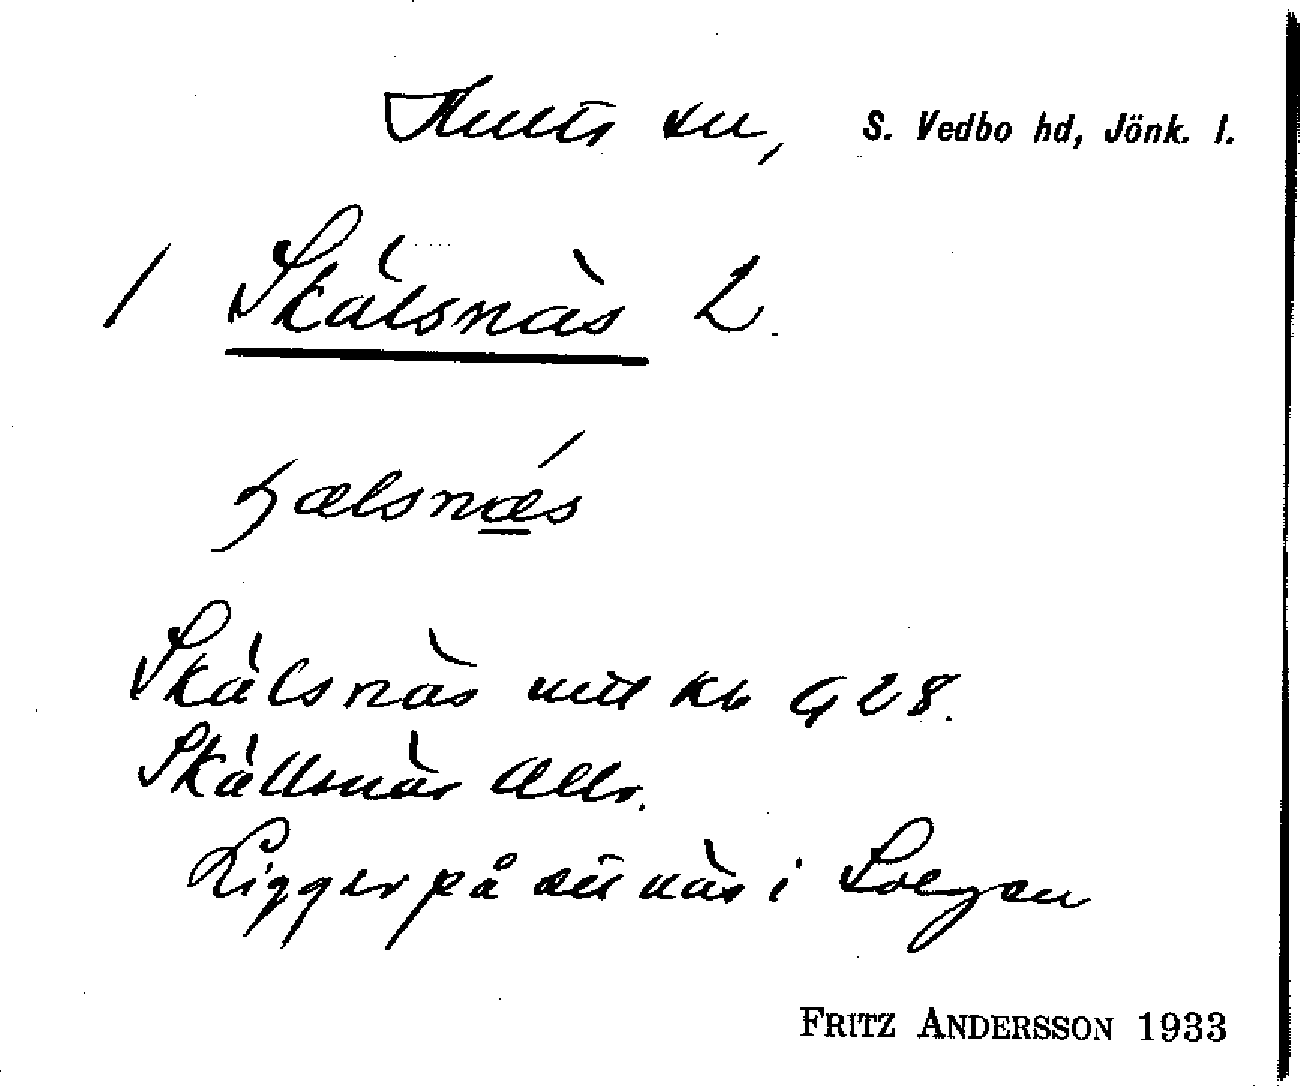 Hults sn, S. Vedbo hd, Jönk. l.
1 Skälsnäs 2.
ɧælsnǽs
Skälsnäs ueck kb G 28.
Skällsnäs Allr.
Ligger på ett näs i Solgen
FRITZ ANDERSSON 1933